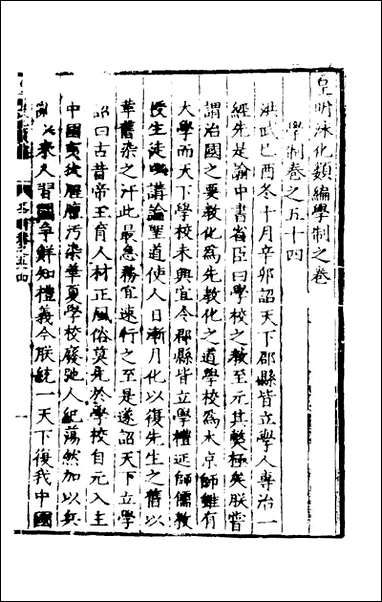 皇明泳化類編學制之卷
學制卷之五十四
洪武己酉冬十月辛卯詔天下郡縣皆立學人專治一
經先是諭中書省臣曰學校之教至元其弊極矣朕嘗
謂治國之要教化為先教化之道學校為本京師雖有
大學而天下學校未興宜令郡縣皆立學禮延師儒教
授生徒以講論聖道使人日漸月化以復先生之舊以
革舊染之汙此最急務宜速行之至是遂詔天下立學
詔曰古昔帝王育人材正風俗莫先於學校自元入主
中國夷狄腥膻污染華夏學校廢弛人紀蕩然加以兵
亂以來人習鬬爭鮮知禮義今朕統一天下復我中國